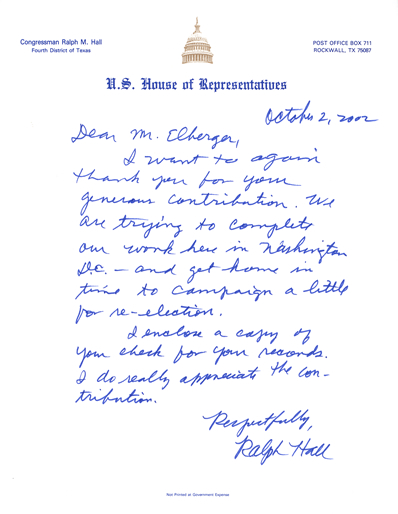 Congressman Ralph M. Hall
Fourth District of Texas
POST OFFICE BOX 711
ROCKWALL, TX 75087
U.S. House of Representatives
October 2, 2002
Dear Mr. Elberger,
I want to again
thank you for your
generous contribution. We
are trying to complete
our work here in Washington
D.C. – and get home in
time to campaign a little
for re-election.
I enclose a copy of
your check for your records.
I do really appreciate the con-
tribution.
Respectfully,
Ralph Hall
Not Printed at Government Expense